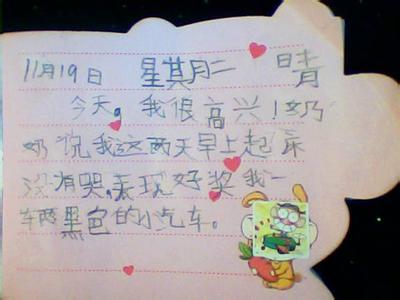 11月19日 星期二 晴
今天。我很高兴！奶
奶说我这两天早上起床
没有哭，表现好奖我一
辆黑色的小汽车。